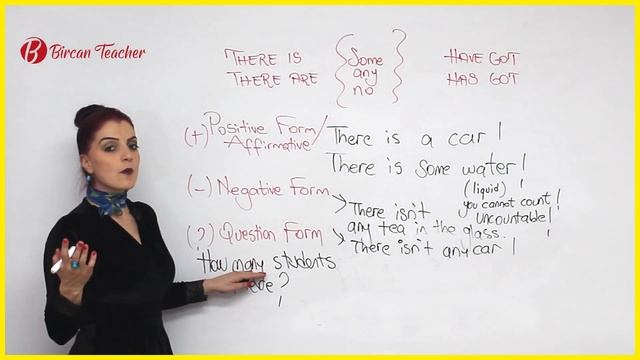 B Bircan Teacher
THERE IS
THERE ARE
Some
any
no
HAVE GOT
HAS GOT
(+) Positive Form/
Affirmative
There is a car!
There is Some water!
(liquid)
you cannot count!
uncountable!
(-) Negative Form
There isn't
any tea in the glass.
There isn't any car!
(?) Question Form
How many students
there?